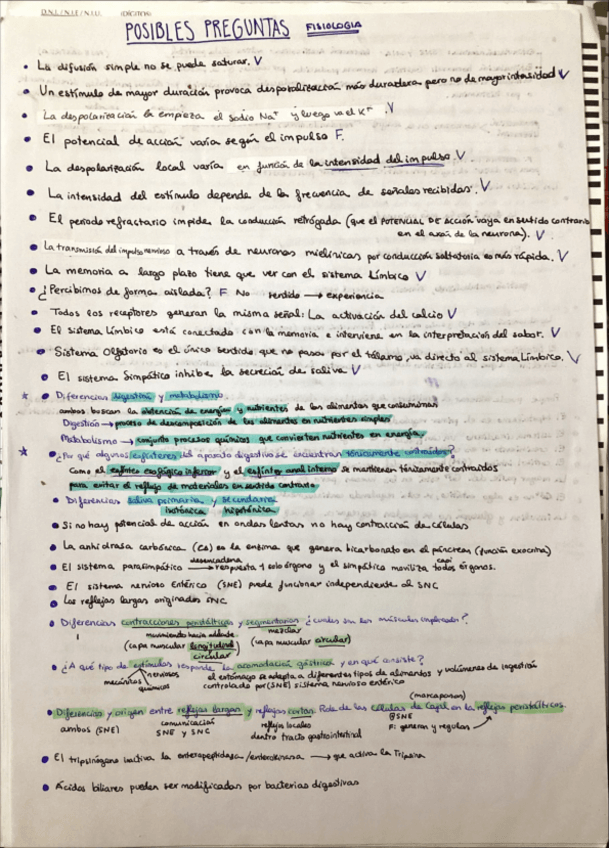 D.N.I./N.I.F./N.I.U.
POSIBLES PREGUNTAS FISIOLOGIA
• La difusión simple no se puede saturar. V
• Un estímulo de mayor duración provoca despolarización más duradera pero no de mayor intensidad V
• La despolarización la empieza el sodio Na+ y luego va el K+. V
• El potencial de acción varía según el impulso F.
• La despolarización local varía en función de la intensidad del impulso V.
• La intensidad del estímulo depende de la frecuencia de señales recibidas. V
• El periodo refractario impide la conducción retrógada (que el POTENCIAL DE ACCIÓN vaya en sentido contrario
en el axón de la neurona). V
• La transmisión del impulso nervioso a través de neuronas mielínicas por conducción saltatoria es más rápida. V
• La memoria a largo plazo tiene que ver con el sistema límbico V
• ¿Percibimos de forma aislada? F No sentido → experiencia
• Todos los receptores generan la misma señal: La activación del calcio V
• El sistema límbico está conectado con la memoria e interviene en la interpretación del sabor. V
• Sistema Olfatorio es el único sentido que no pasa por el tálamo, va directo al sistema Límbico. V
• El sistema Simpático inhibe la secreción de saliva V
* • Diferencias digestión y metabolismo.
ambos buscan la obtención de energías y nutrientes de los alimentos que consumimos
Digestión → proceso de descomposición de los alimentos en nutrientes simples
Metabolismo → conjunto procesos químicos que convierten nutrientes en energía.
* • ¿Por qué algunos esfínteres del aparato digestivo se encuentran tónicamente contraidos?
Como el esfínter esofágico inferior y el esfínter anal interno se mantienen tónicamente contraidos
para evitar el reflujo de materiales en sentido contrario
• Diferencias saliva primaria y secundaria
isotónica hipotónica
• Si no hay potencial de acción en ondas lentas no hay contracción de células
• La anhidrasa carbónica (CA) es la enzima que genera bicarbonato en el páncreas (función exocrina)
• El sistema parasimpático desencadena → respuesta 1 solo órgano y el simpático moviliza casi todos órganos.
• El sistema nervioso Entérico (SNE) puede funcionar independiente al SNC
• Los reflejos largos originados SNC
• Diferencias contracciones peristálticas y segmentarias ¿cuales son los músculos implicados?
movimiento hacia adelante mezclar
(capa muscular longitudinal) (capa muscular circular)
circular
• ¿A qué tipo de estímulos responde la acomodación gástrica y en qué consiste?
mecánicos nerviosos químicos el estómago se adapta a diferentes tipos de alimentos y volúmenes de ingestión
controlado por (SNE) sistema nervioso entérico
(marcapasos)
• Diferencias y origen entre reflejos largos y reflejos cortos. Rol de las células de Cajal en los reflejos peristálticos.
ambos (SNE) comunicación SNE y SNC reflejos locales dentro tracto gastrointestinal @SNE
F: generan y regulan
• El tripsinógeno inactiva la enteropeptidasa/enterokinasa → que activa la Tripsina
• Ácidos biliares pueden ser modificados por bacterias digestivas